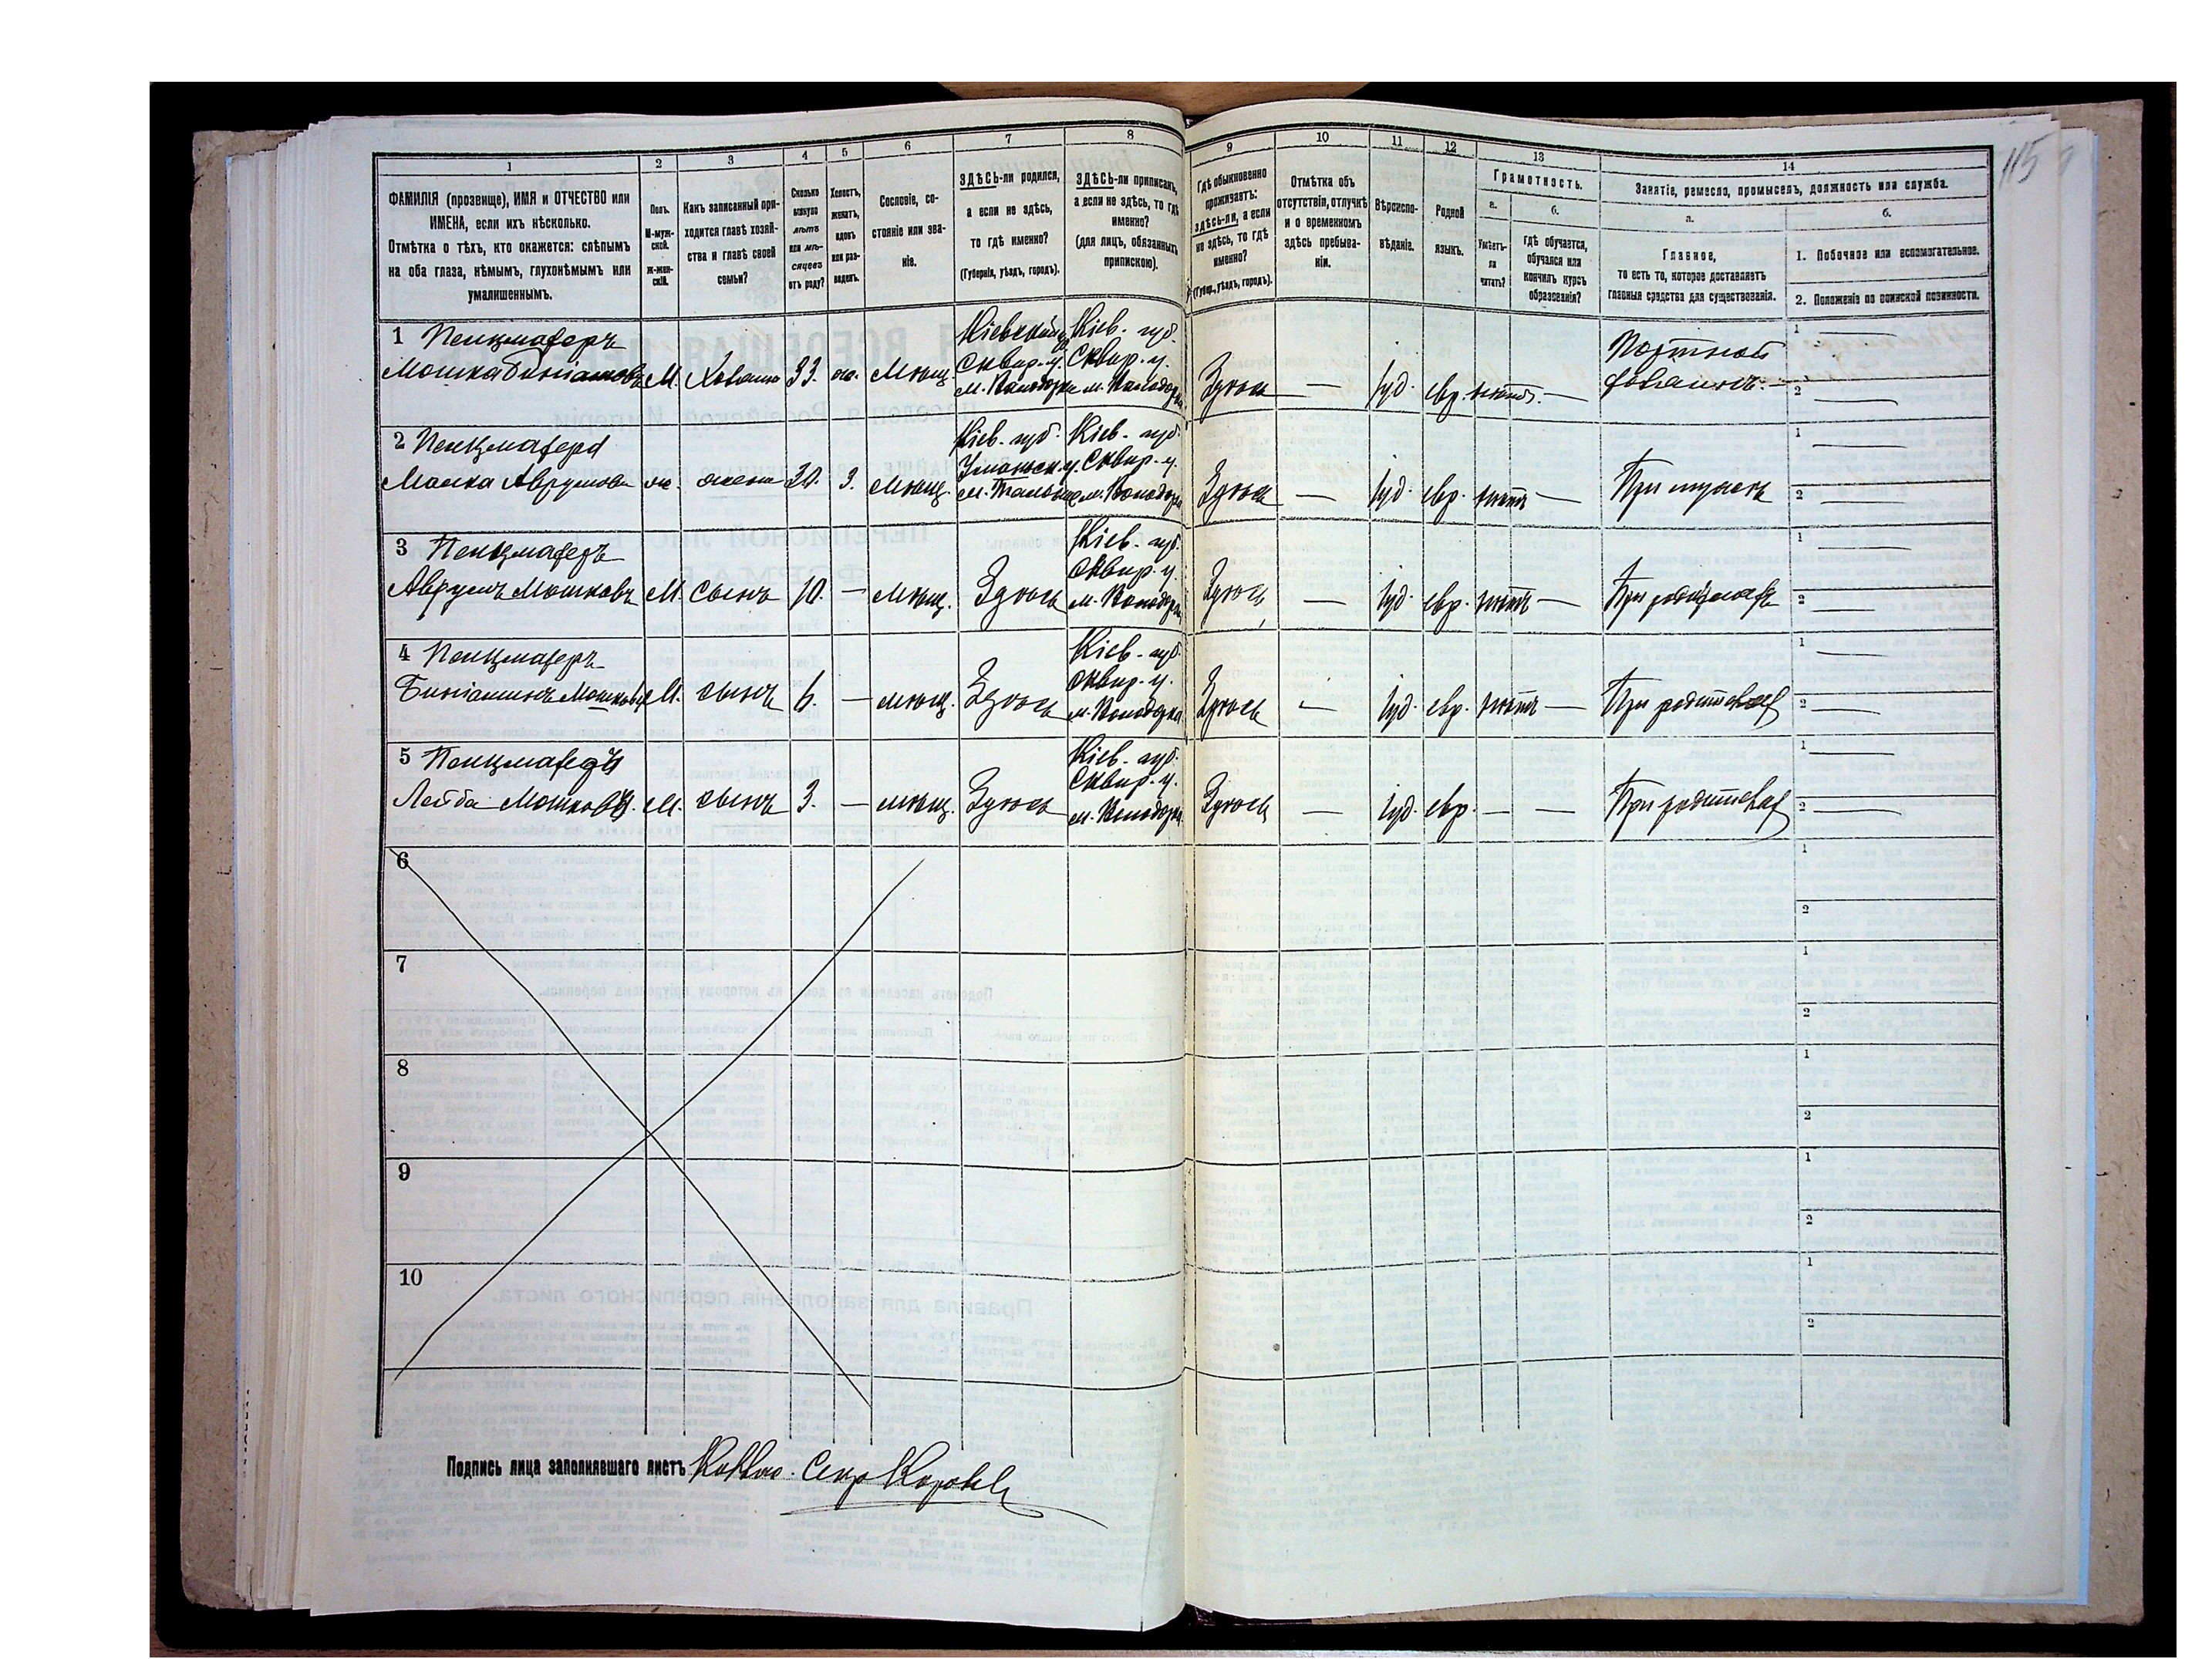 115
1
2
3
4
5
6
7
8
9
10
11
12
13
14
ФАМИЛІЯ (прозвище), ИМЯ и ОТЧЕСТВО или
ИМЕНА, если ихъ нѣсколько.
Отмѣтка о тѣхъ, кто окажется: слѣпымъ
на оба глаза, нѣмымъ, глухонѣмымъ или
умалишеннымъ.
Полъ.
М-муж-
ской.
Ж-жен-
скій.
Какъ записанный при-
ходится главѣ хозяй-
ства и главѣ своей
семьи?
Сколько
минуло
лѣтъ
или мѣ-
сяцевъ
отъ роду?
Холостъ,
женатъ,
вдовъ
или раз-
веденъ.
Сословіе, со-
стояніе или зва-
ніе.
ЗДѢСЬ-ли родился,
а если не здѣсь,
то гдѣ именно?
(Губернія, уѣздъ, городъ).
ЗДѢСЬ-ли приписанъ,
а если не здѣсь, то гдѣ
именно?
(для лицъ, обязанныхъ
припискою).
Гдѣ обыкновенно
проживаетъ:
здѣсь-ли, а если
не здѣсь, то гдѣ
именно?
(Губер., уѣздъ, городъ).
Отмѣтка объ
отсутствіи, отлучкѣ
и о временномъ
здѣсь пребыва-
ніи.
Вѣроиспо-
вѣданіе.
Родной
языкъ.
Грамотность.
а.
б.
Умѣетъ-
ли
читать?
Гдѣ обучается,
обучался или
кончилъ курсъ
образованія?
Занятіе, ремесло, промыселъ, должность или служба.
а.
б.
Главное,
то есть то, которое доставляетъ
главныя средства для существованія.
1. Побочное или вспомогательное.
2. Положеніе по воинской повинности.
1 Пенцмахеръ
Мошка М. 33. Мѣщ.
Кіев. губ.
Сквир. у. Сквир. у.
Здѣсь — Іуд. евр. нѣтъ. —
Портной
1 —
2 —
2 Пенцмахеръ
Малка Аврумова ж. жена 30. З. Мѣщ.
Кіев. губ. Кіев. губ.
Уманьск. у. Сквир. у.
Здѣсь — Іуд. евр. нѣтъ —
При мужѣ
1 —
2 —
3 Пенцмахеръ
Аврумъ Мошковъ М. сынъ 10. — Мѣщ. Здѣсь
Кіев. губ.
Сквир. у.
Здѣсь — Іуд. евр. нѣтъ —
1 —
2 —
4 Пенцмахеръ
Биніаминъ Мошковъ М. сынъ 6. — мѣщ. Здѣсь
Кіев. губ.
Сквир. у.
Здѣсь — Іуд. евр. нѣтъ —
При родителяхъ
1 —
2 —
5 Пенцмахеръ
Лейба Мошковъ. М. сынъ 3. — мѣщ. Здѣсь
Кіев. губ.
Сквир. у.
Здѣсь — Іуд. евр. — —
При родителяхъ
1 —
2 —
6
1
2
7
1
2
8
1
2
9
1
2
10
1
2
Подпись лица заполнявшаго листъ